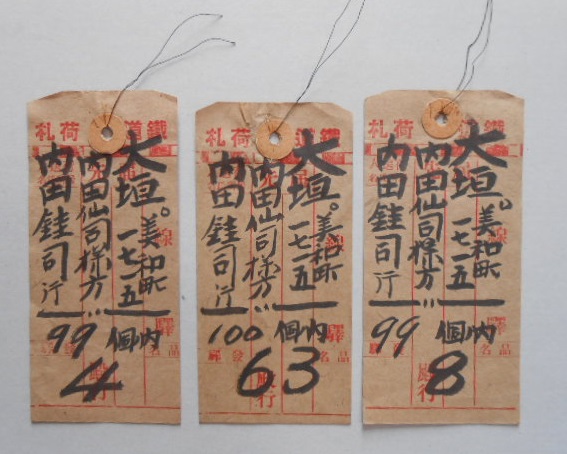 札荷道鐵
大垣。美和町
一七一五
内田仙司様方
内田銈司行
99個内
4
札荷道鐵
大垣。美和町
一七一五
内田仙司様方
内田銈司行
100個内
63
札荷道鐵
大垣。美和町
一七一五
内田仙司様方
内田銈司行
99個内
8